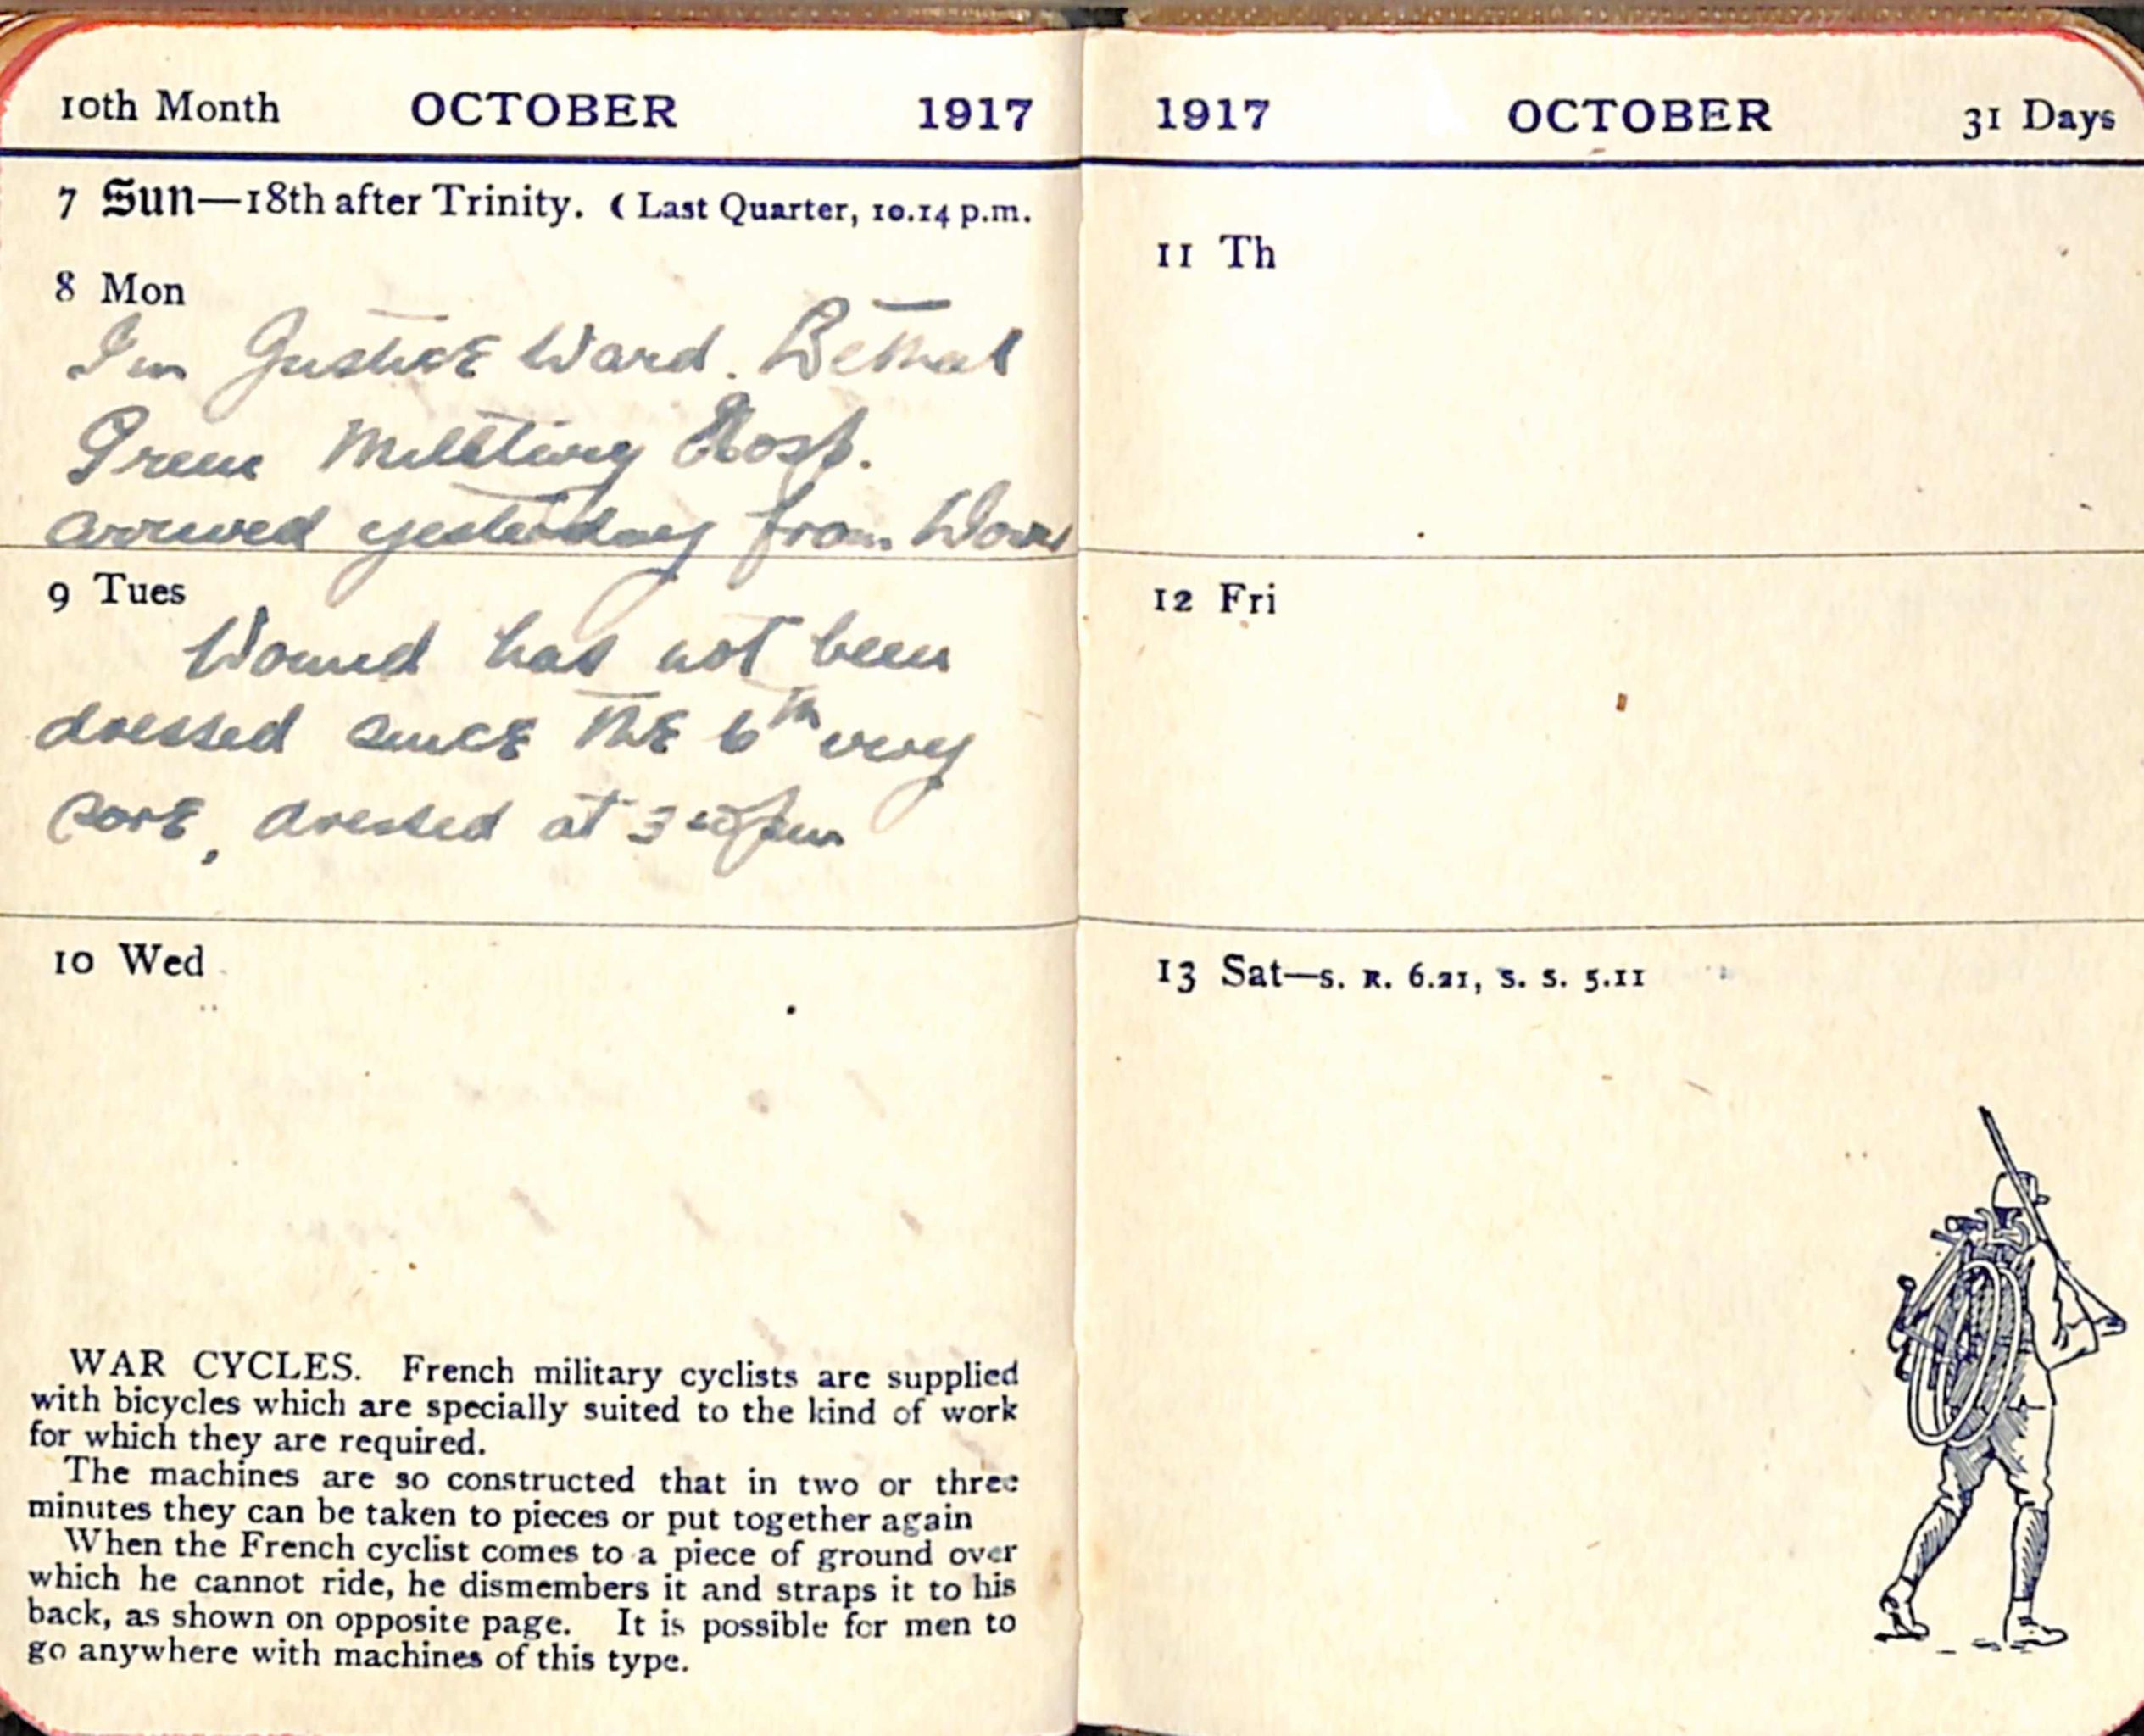 10th Month OCTOBER 1917
7 Sun—18th after Trinity. ☾ Last Quarter, 10.14 p.m.
8 Mon
I'm Justice Ward. Bethal
Green Military Hosp.
arrived yesterday from
9 Tues
Wound has not been
dressed since the 6th very
sore, dressed at 3 pm
10 Wed
WAR CYCLES. French military cyclists are supplied
with bicycles which are specially suited to the kind of work
for which they are required.
The machines are so constructed that in two or three
minutes they can be taken to pieces or put together again
When the French cyclist comes to a piece of ground over
which he cannot ride, he dismembers it and straps it to his
back, as shown on opposite page. It is possible for men to
go anywhere with machines of this type.
1917 OCTOBER 31 Days
11 Th
12 Fri
13 Sat—S. R. 6.21, S. S. 5.11